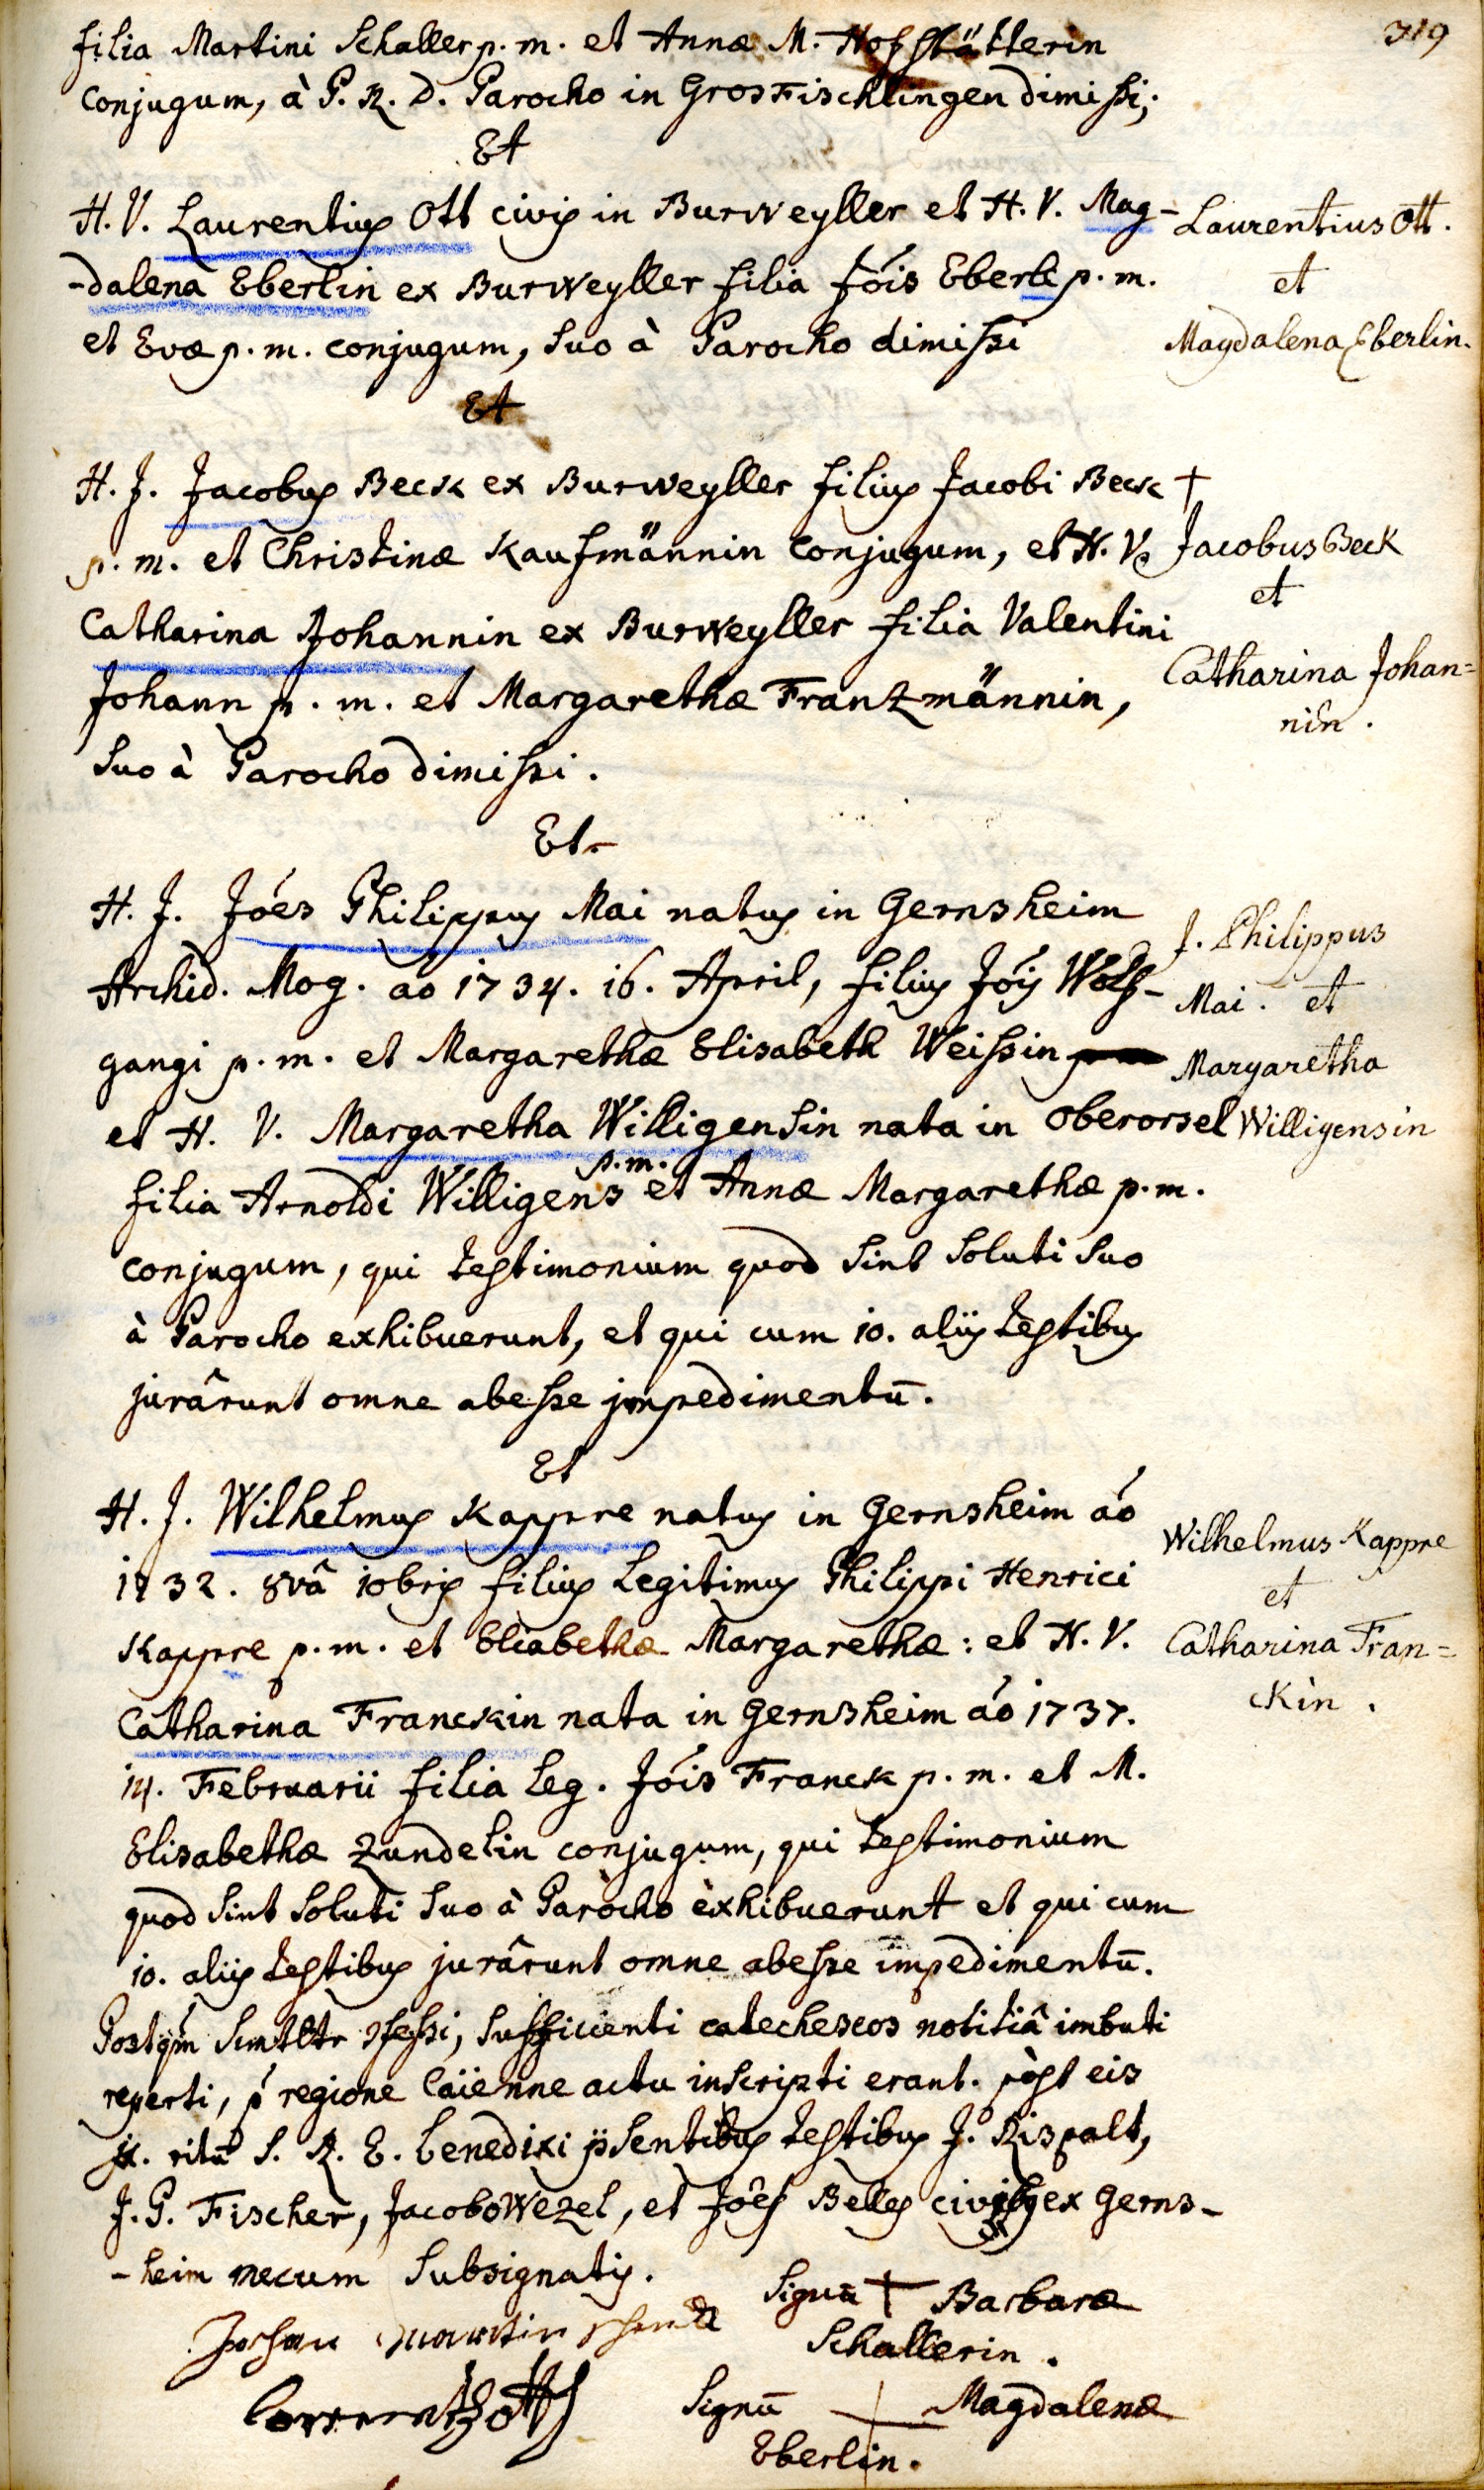 319
filia Martini Schaller p. m. et Annæ M. Hofstätterin
conjugum, à P. R. D. Parocho in GrosFischlingen dimissi;
Et
H. V. Laurentius Ott civis in Burweyller et H. V. Mag-
-dalena Eberlin ex Burweyller filia Jóis Eberle p. m.
et Evæ p. m. conjugum, suo à Parocho dimissi
Laurentius Ott.
et
Magdalena Eberlin.
Et
H. J. Jacobus Beck ex Burweyller filius Jacobi Beck
p. m. et Christinæ Kaufmännin conjugum, et H. V.
Catharina Johannin ex Burweyller filia Valentini
Johann p. m. et Margarethæ Franzmännin,
suo à Parocho dimissi.
†
Jacobus Beck
et
Catharina Johan=
nin.
Et
H. J. Jóes Philippus Mai natus in Gernsheim
Archid. Mog. ao 1734. 16. April, filius Jóis Wolf-
gangi p. m. et Margarethæ Elisabeth Weissin
et H. V. Margaretha Willigensin nata in Oberorsel
filia Arnoldi Willigens p. m. et Annæ Margarethæ p. m.
conjugum, qui testimonium quod sint soluti suo
à Parocho exhibuerunt, et qui cum 10. aliis testibus
jurârunt omne abesse impedimentū.
J. Philippus
Mai. et
Margaretha
Willigensin
Et
H. J. Wilhelmus Kappre natus in Gernsheim aó
1732. 8vâ 10bris filius legitimus Philippi Henrici
Kappre p. m. et Eliabethæ Margarethæ: et H. V.
Catharina Franckin nata in Gernsheim aó 1737.
14. Februarii filia leg. Jóis Franck p. m. et M.
Elisabethæ Zundelin conjugum, qui testimonium
quod sint soluti suo à Parocho exhibuerunt et qui cum
10. aliis testibus jurârunt omne abesse impedimentū.
Wilhelmus Kappre
et
Catharina Fran=
ckin.
Postqm̄ sufficienti catecheseos notitiâ imbuti
reperti, regione Caienne actu inscripti erant. post eis
ritū S. R. E. benedixi p̈sentibus testibus J. Rispalt,
J. G. Fischer, Jacobo Wezel, et Jóes Belles ex Gerns-
-heim mecum subsignatis.
Johan Martin
Signū + Barbaræ
Schallerin.
Signū + Magdalenæ
Eberlin.